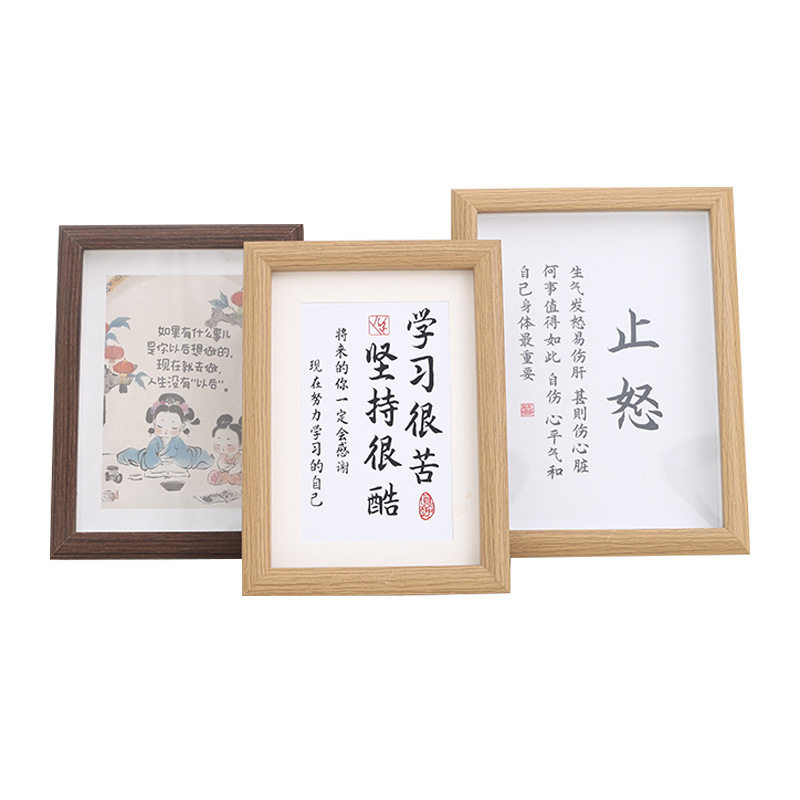 如果有什么事儿
是你以后想做的，
现在就去做，
人生没有“以后”。
学习很苦
坚持很酷
将来的你一定会感谢
现在努力学习的自己
止怒
生气发怒易伤肝 甚则伤心脏
何事值得如此自伤 心平气和
自己身体最重要